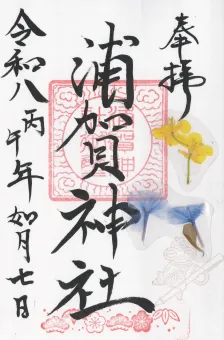 奉拝
浦賀神社
令和八丙午年如月七日